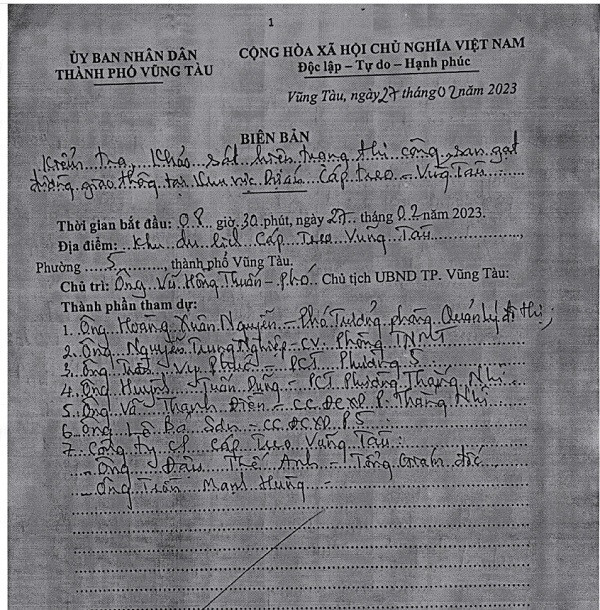 1
ỦY BAN NHÂN DÂN
THÀNH PHỐ VŨNG TÀU
CỘNG HÒA XÃ HỘI CHỦ NGHĨA VIỆT NAM
Độc lập – Tự do – Hạnh phúc
Vũng Tàu, ngày 27 tháng 02 năm 2023
BIÊN BẢN
Kiểm tra, khảo sát hiện trạng thi công, san gạt
đường giao thông tại khu vực Dự án Cáp treo - Vũng Tàu
Thời gian bắt đầu: 08 giờ 30 phút, ngày 27 tháng 02 năm 2023.
Địa điểm: Khu du lịch Cáp Treo Vũng Tàu,
Phường 5, thành phố Vũng Tàu.
Chủ trì: Ông Vũ Hồng Thuấn - Phó Chủ tịch UBND TP. Vũng Tàu:
Thành phần tham dự:
1. Ông Hoàng Xuân Nguyễn - Phó Trưởng phòng Quản lý đô thị;
2. Ông Nguyễn Trung Nghiệp - CV. Phòng TNMT
3. Ông Trần - PCT Phường 5
4. Ông Huỳnh Tuấn Dũng - PCT Phường Thắng Nhì
5. Ông Võ Thanh Điền - CC. ĐCXD P. Thắng Nhì
6. Ông Lê Ba Sơn - CC. ĐCXD P.5
7. Công ty CP Cáp Treo Vũng Tàu:
- Ông Đậu Thế Anh - Tổng Giám đốc
- Ông Trần Mạnh Hùng -